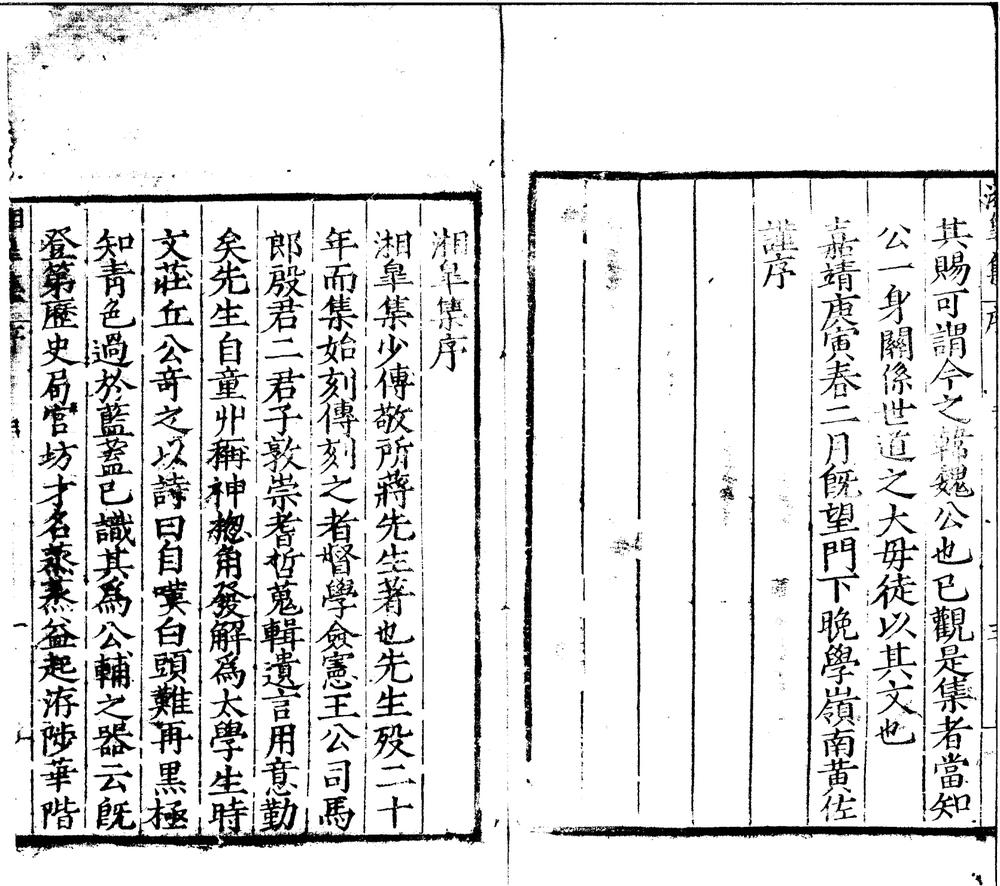 其賜可謂今之韓魏公也已觀是集者當知
公一身關係世道之大毋徒以其文也
嘉靖庚寅春二月既望門下晚學嶺南黃佐
謹序
湘皐集序
湘皐集少傅敬所蔣先生著也先生歿二十
年而集始刻傳刻之者督學僉憲王公司馬
郎殷君二君子敦崇耆哲蒐輯遺言用意勤
矣先生自童丱稱神揔角發解爲太學生時
文莊丘公竒之以詩曰自嘆白頭難再黒極
知靑色過於藍蓋已識其爲公輔之器云旣
登第歷史局宮坊才名蒸蒸益起洊陟華階